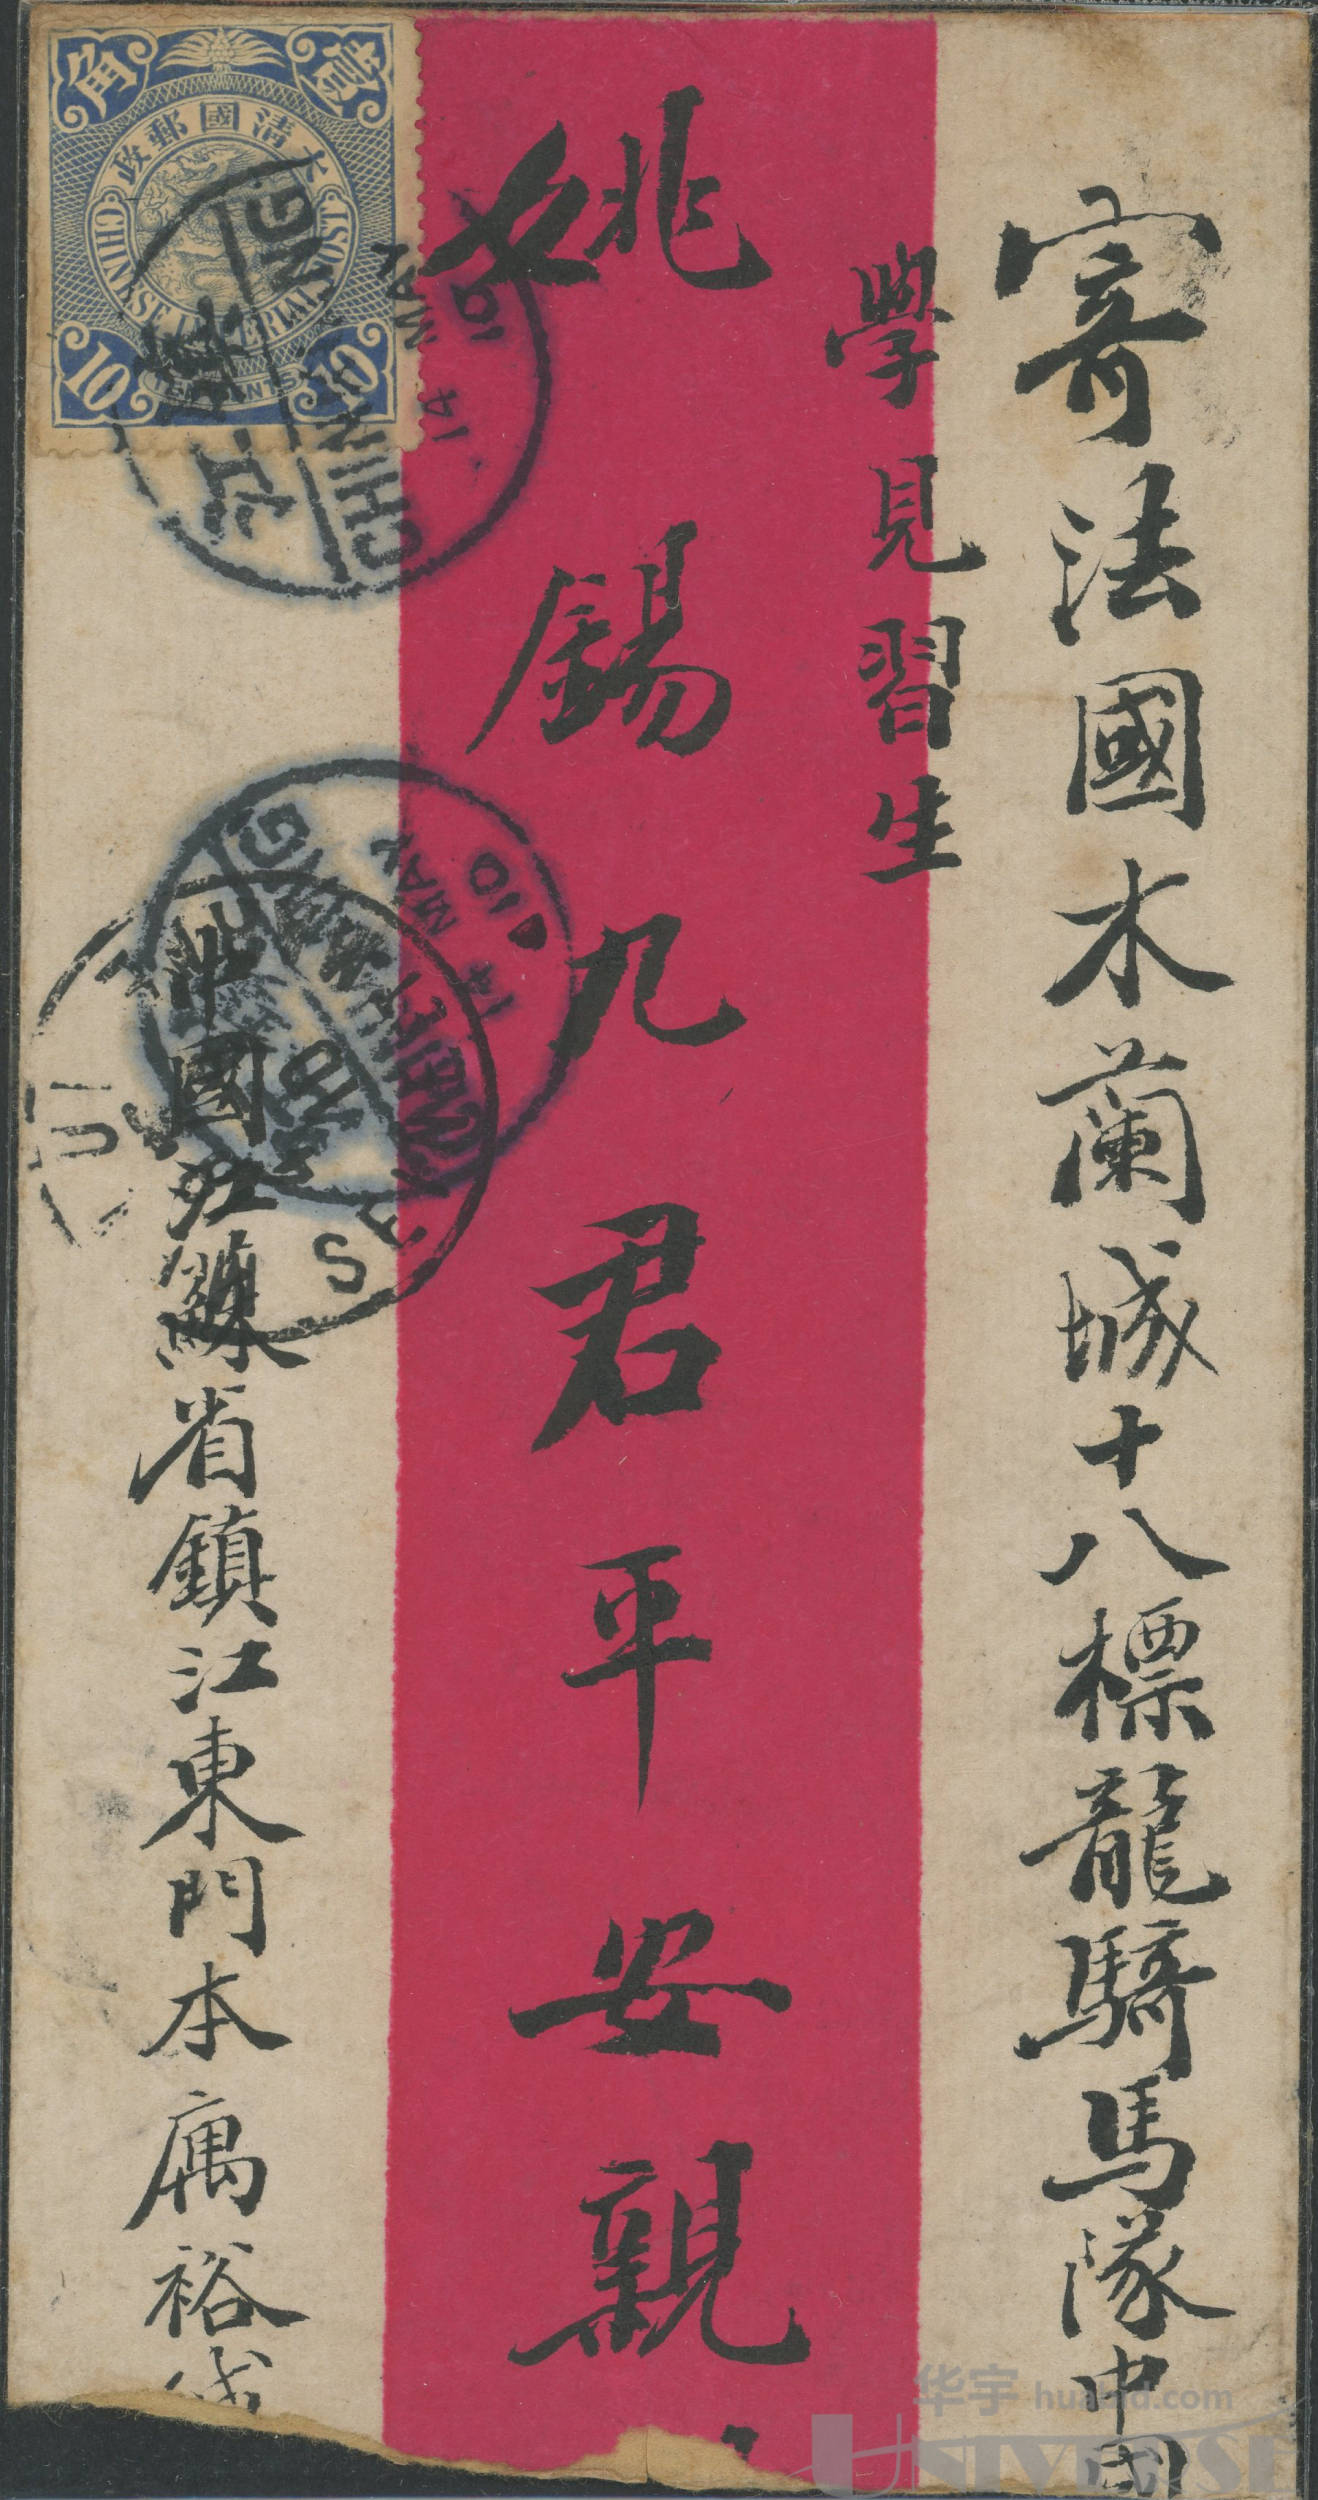 寄法國木蘭城十八標龍騎馬隊中國
學見習生
姚錫九君平安親
中國江蘇省鎮江東門本寓裕
大清國郵政
壹角
CHINESE IMPERIAL POST
10 TEN CENTS 10
CHINKIANG
14 MAY 10
CHINKIANG
14 MAY 10
华宇 huabid.com
UNIVERSE